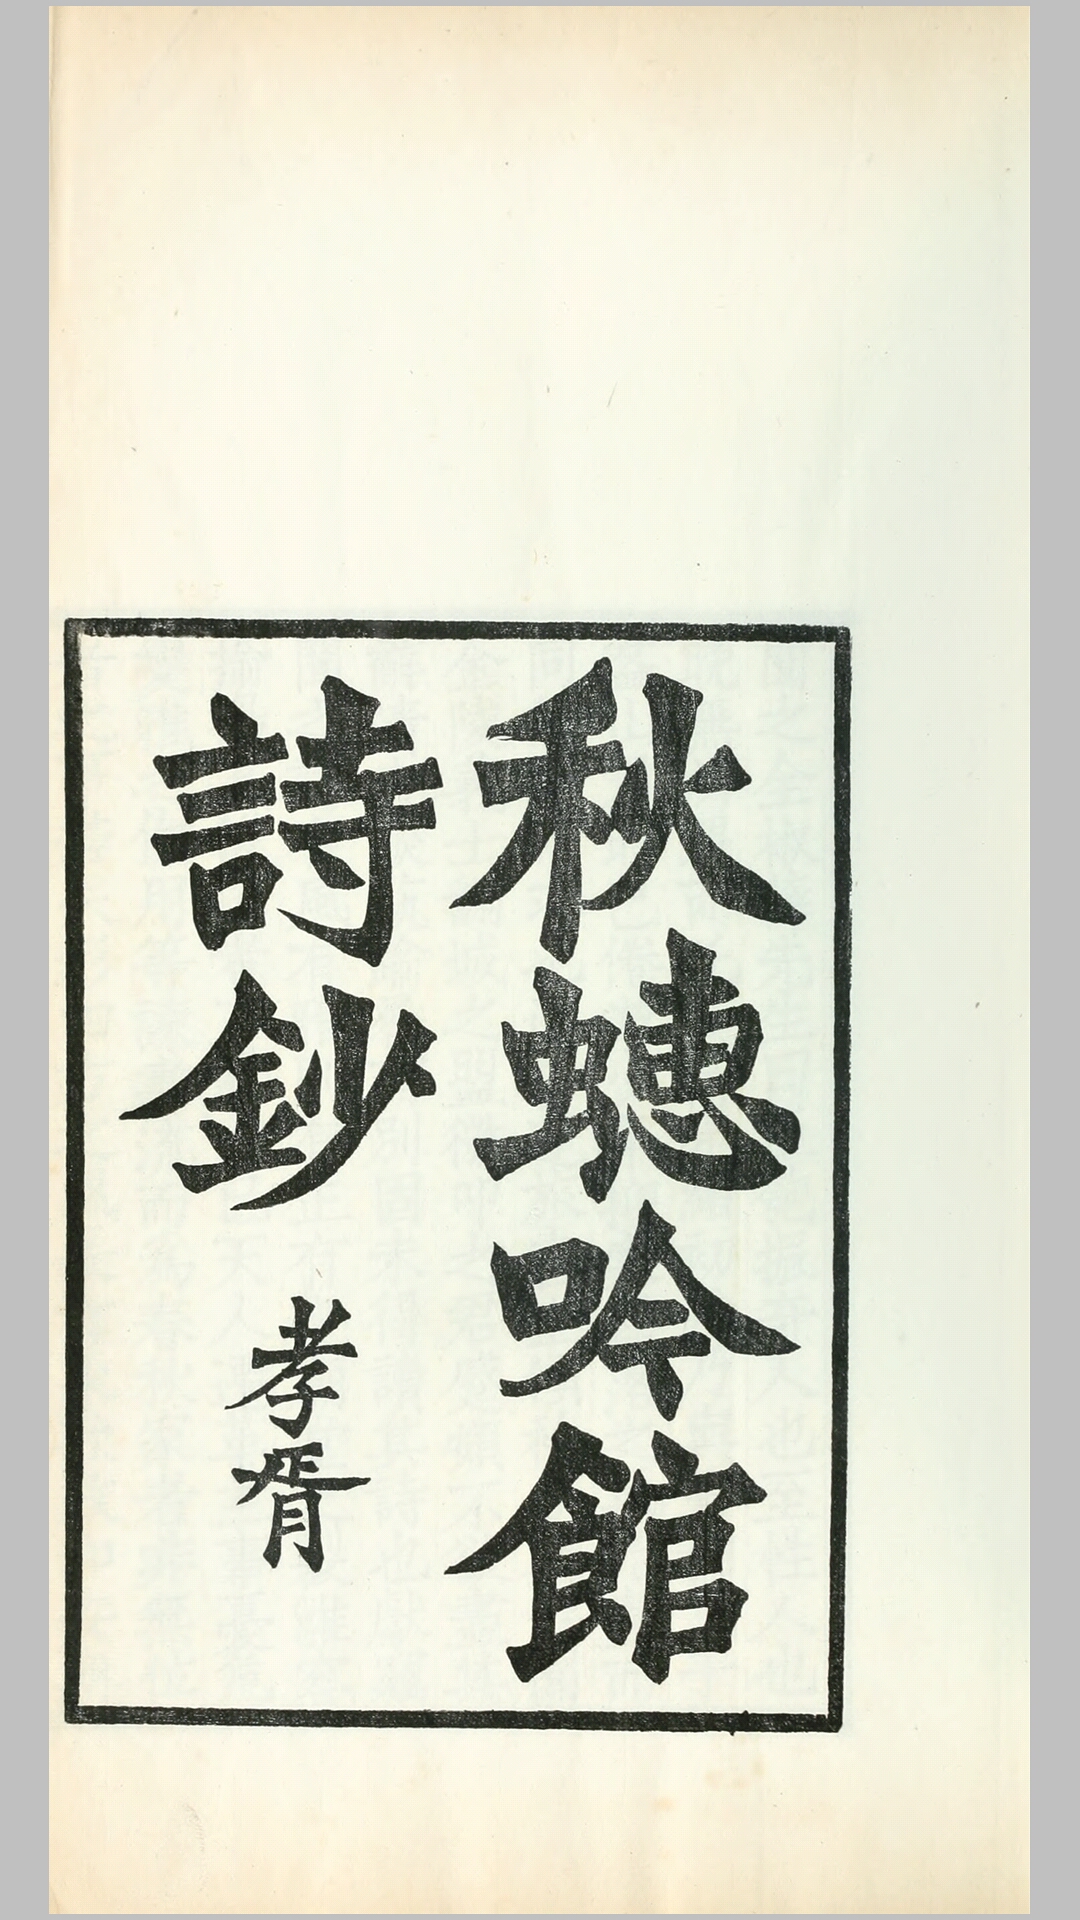 秋蟪吟館
詩鈔
孝胥